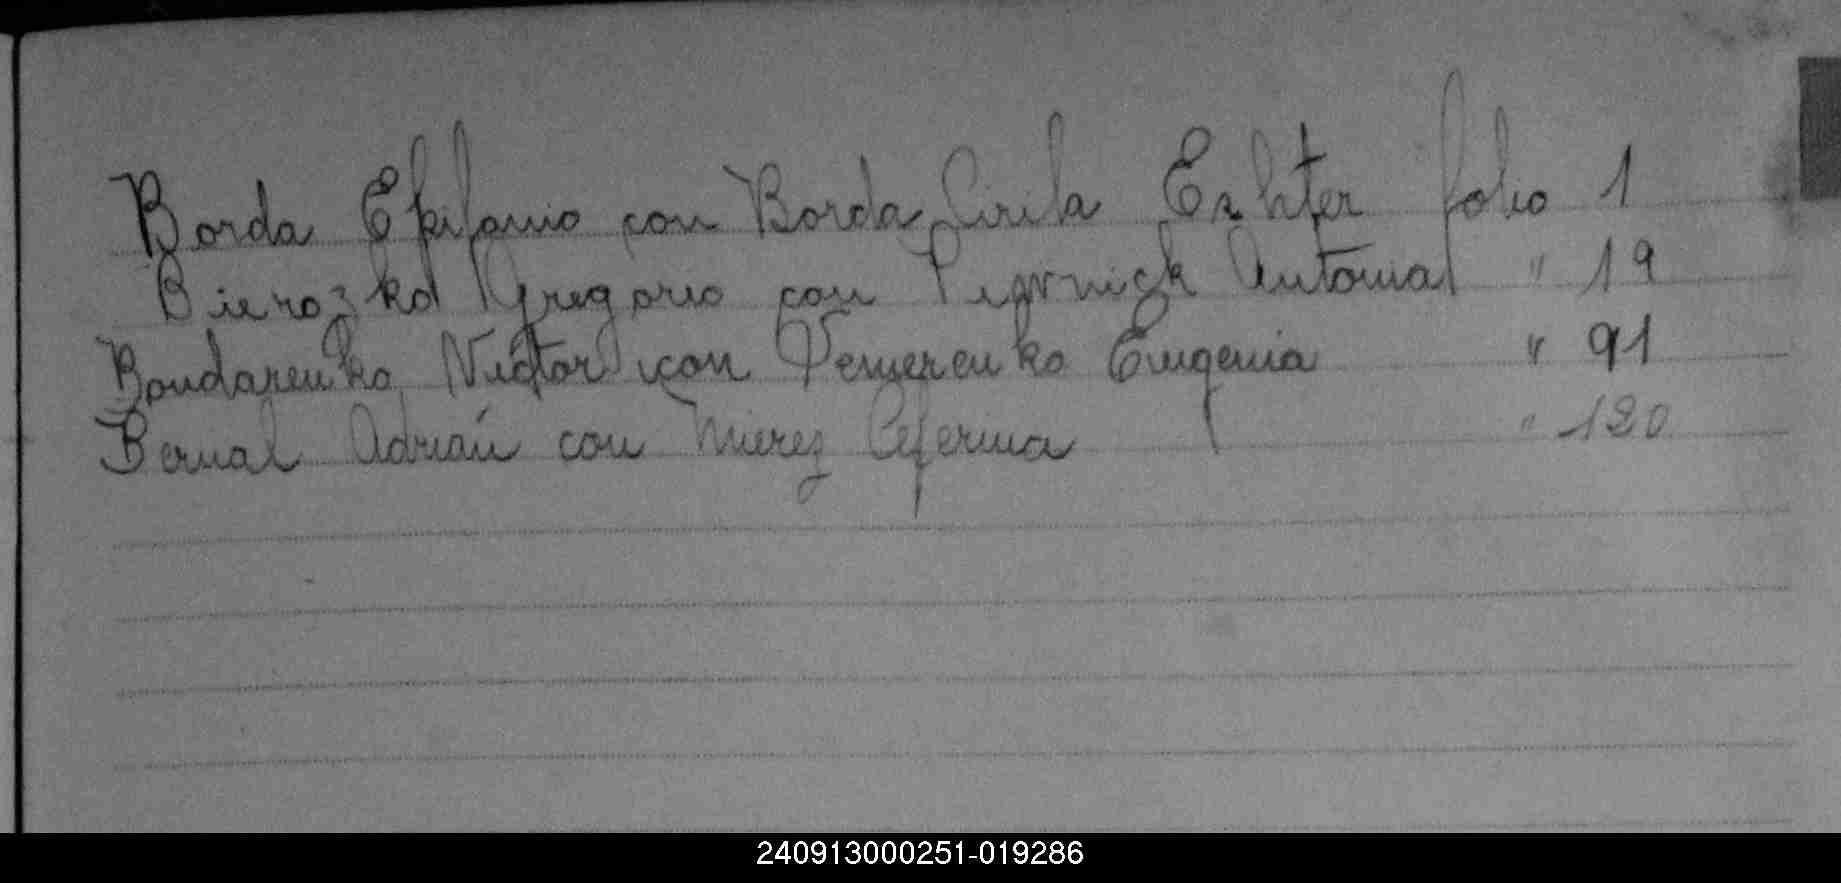 Borda Epifanio con Borda Cirila Eshter folio 1
Bierozko Gregorio con Antonia " 19
Bondarenko Victor con Temerenko Eugenia " 91
Bernal Adrián con Mierez Ceferina " 120
240913000251-019286